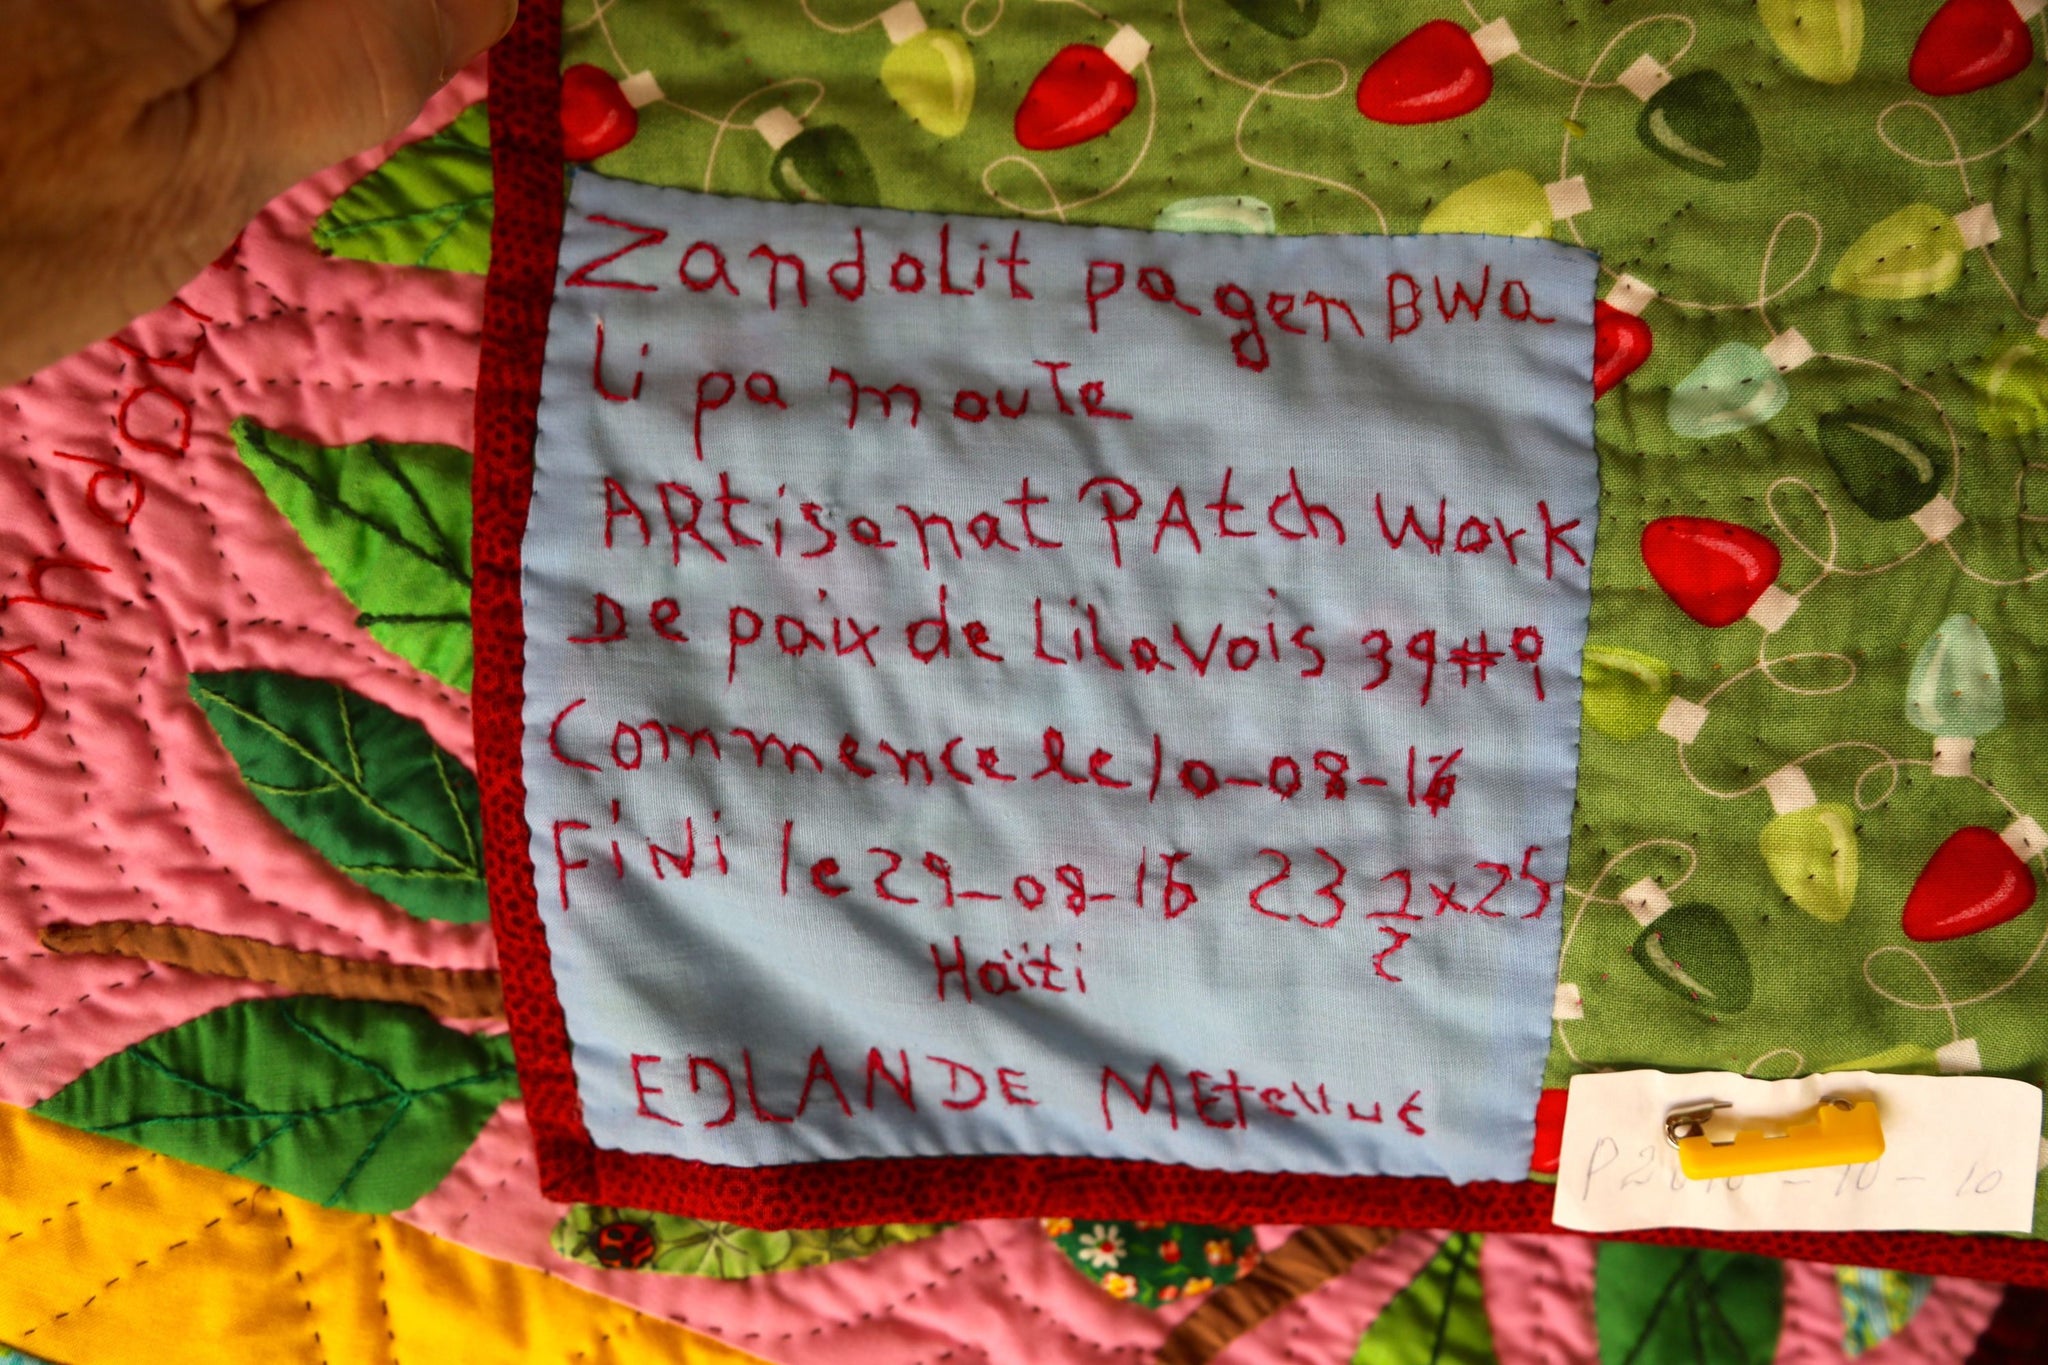 Zandolit pa gen BWa
Li pa moute
ARtisanat PAtch Work
De paix de LiLaVois 39#9
Commence le 10-08-16
FiNi le 29-08-16 23 1/2 x 25
Haïti
EDLANDE MEtellus